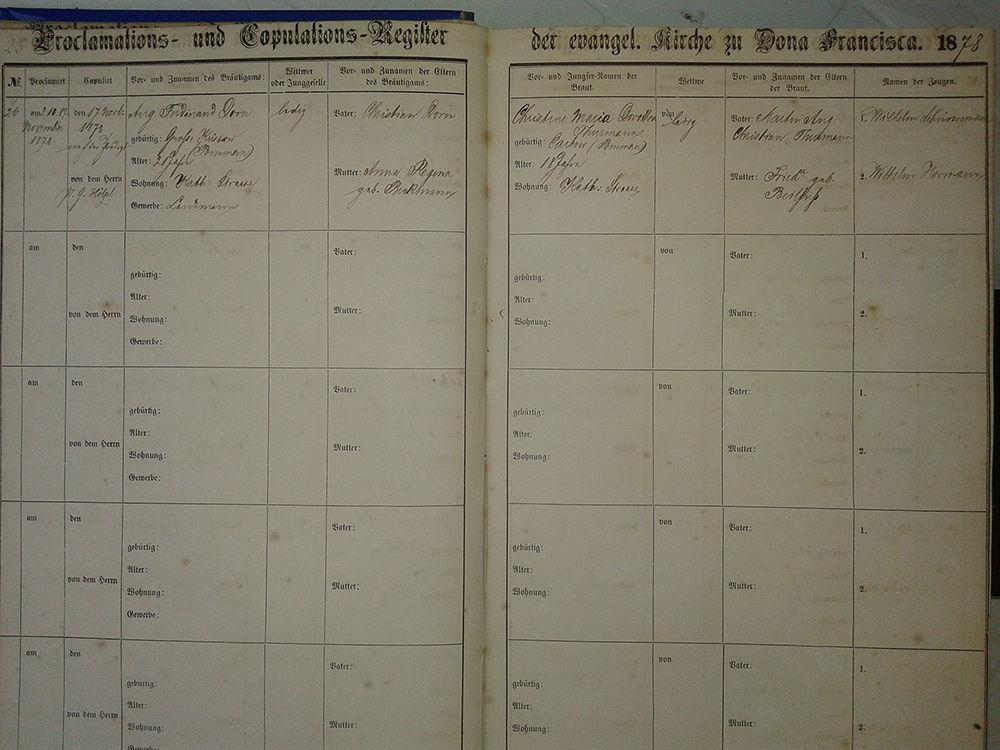 Proclamations- und Copulations-Register der evangel. Kirche zu Dona Francisca. 1878
№
Proclamirt
Copulirt
Vor- und Zunamen des Bräutigams:
Wittwer
oder Junggeselle
Vor- und Zunamen der Eltern
des Bräutigams:
Vor- und Jungfer-Namen der
Braut.
Wittwe
Vor- und Zunamen der Eltern
der Braut.
Namen der Zeugen.
26
am 10. 17.
November
1878
den 17 Novb.
1878
von dem Herrn
Aug. Ferdinand Dorn
gebürtig:
(Pommern)
Alter: 25 Jahr
Wohnung: Kath. Strasse
Gewerbe: Landmann
ledig
Vater: Christian Dorn
Mutter: Anna Regina
gab.
Christine Maria
gebürtig: (Pommern)
Alter: Jahre
Wohnung: Kath. Strasse
von
Vater: Martin Aug.
Christian
Mutter: Fried. geb.
1. Wilhelm
2. Wilhelm Hermann
am
den
von dem Herrn
gebürtig:
Alter:
Wohnung:
Gewerbe:
Vater:
Mutter:
gebürtig:
Alter:
Wohnung:
von
Vater:
Mutter:
1.
2.
am
den
von dem Herrn
gebürtig:
Alter:
Wohnung:
Gewerbe:
Vater:
Mutter:
gebürtig:
Alter:
Wohnung:
von
Vater:
Mutter:
1.
2.
am
den
von dem Herrn
gebürtig:
Alter:
Wohnung:
Gewerbe:
Vater:
Mutter:
gebürtig:
Alter:
Wohnung:
von
Vater:
Mutter:
1.
2.
am
den
von dem Herrn
gebürtig:
Alter:
Wohnung:
Gewerbe:
Vater:
Mutter:
gebürtig:
Alter:
Wohnung:
von
Vater:
Mutter:
1.
2.